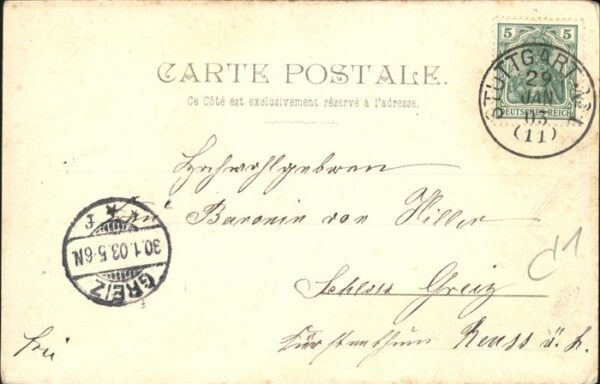 5
DEUTSCHES REICH
STUTTGART No 1
29
JAN
03
(11)
CARTE POSTALE.
Ce Côté est exclusivement réservé à l'adresse.
Hochwohlgeboren
Frau Baronin von Hiller
Schloss Greiz
Fürstenthum Reuss ä. L.
frei
GREIZ
30.1.03.5-6N.
* * f